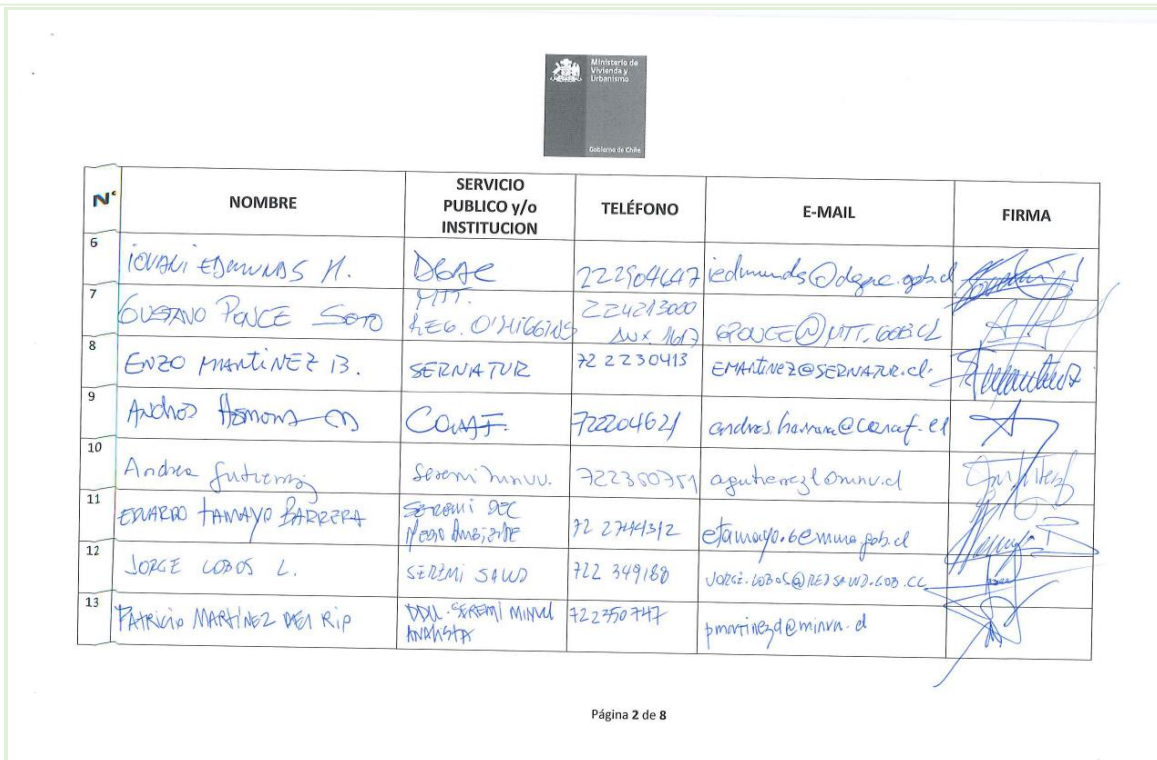 Ministerio de
Vivienda y
Urbanismo
Gobierno de Chile
N° NOMBRE SERVICIO PUBLICO y/o INSTITUCION TELÉFONO E-MAIL FIRMA
6 EDMUNDS M. DGAC 222904647 iedmunds@dgac.gob.cl
7 GUSTAVO PONCE SOTO MTT. REG. O'HIGGINS 224213000 GPONCE@MTT.GOB.CL
8 ENZO MARTINEZ B. SERNATUR 72 2230413 EMARTINEZ@SERNATUR.CL.
9 CONAF. 722204621
10 Andrea Gutierrez Seremi minvu. 722350751
11 EDUARDO TAMAYO BARRERA SEREMI DEL Medio Ambiente 72 2744312
12 JORGE LOBOS L. SEREMI SALUD 722 349188
13 PATRICIO MARTÍNEZ DEL RIP DDU. SEREMI MINVU ANALISTA 722350747 pmartinezd@minvu.cl
Página 2 de 8